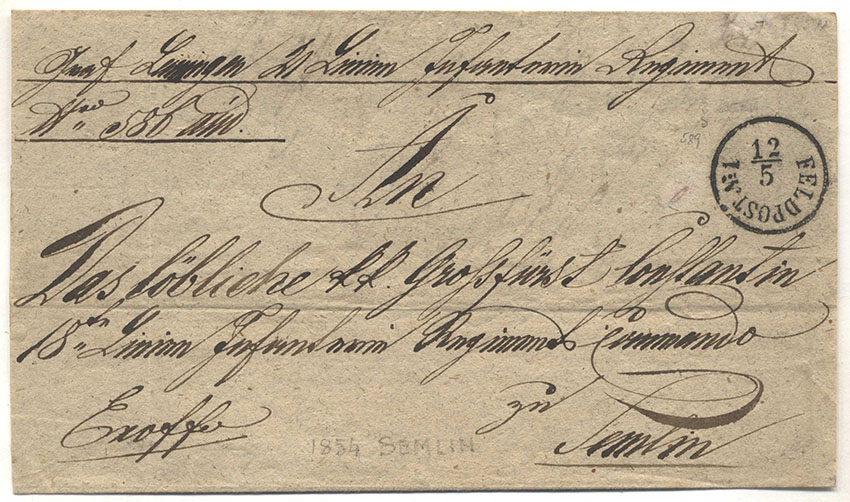 Graf Leiningen 21 Linien Infanterie Regiment
Nro 586 aiid.
589
12
5
FELDPOST N: 1
An
Das löbliche k.k. Großfürst Constantin
18te Linien Infanterie Regiments Commando
Exoffo
zu
Semlin
1854 SEMLIN